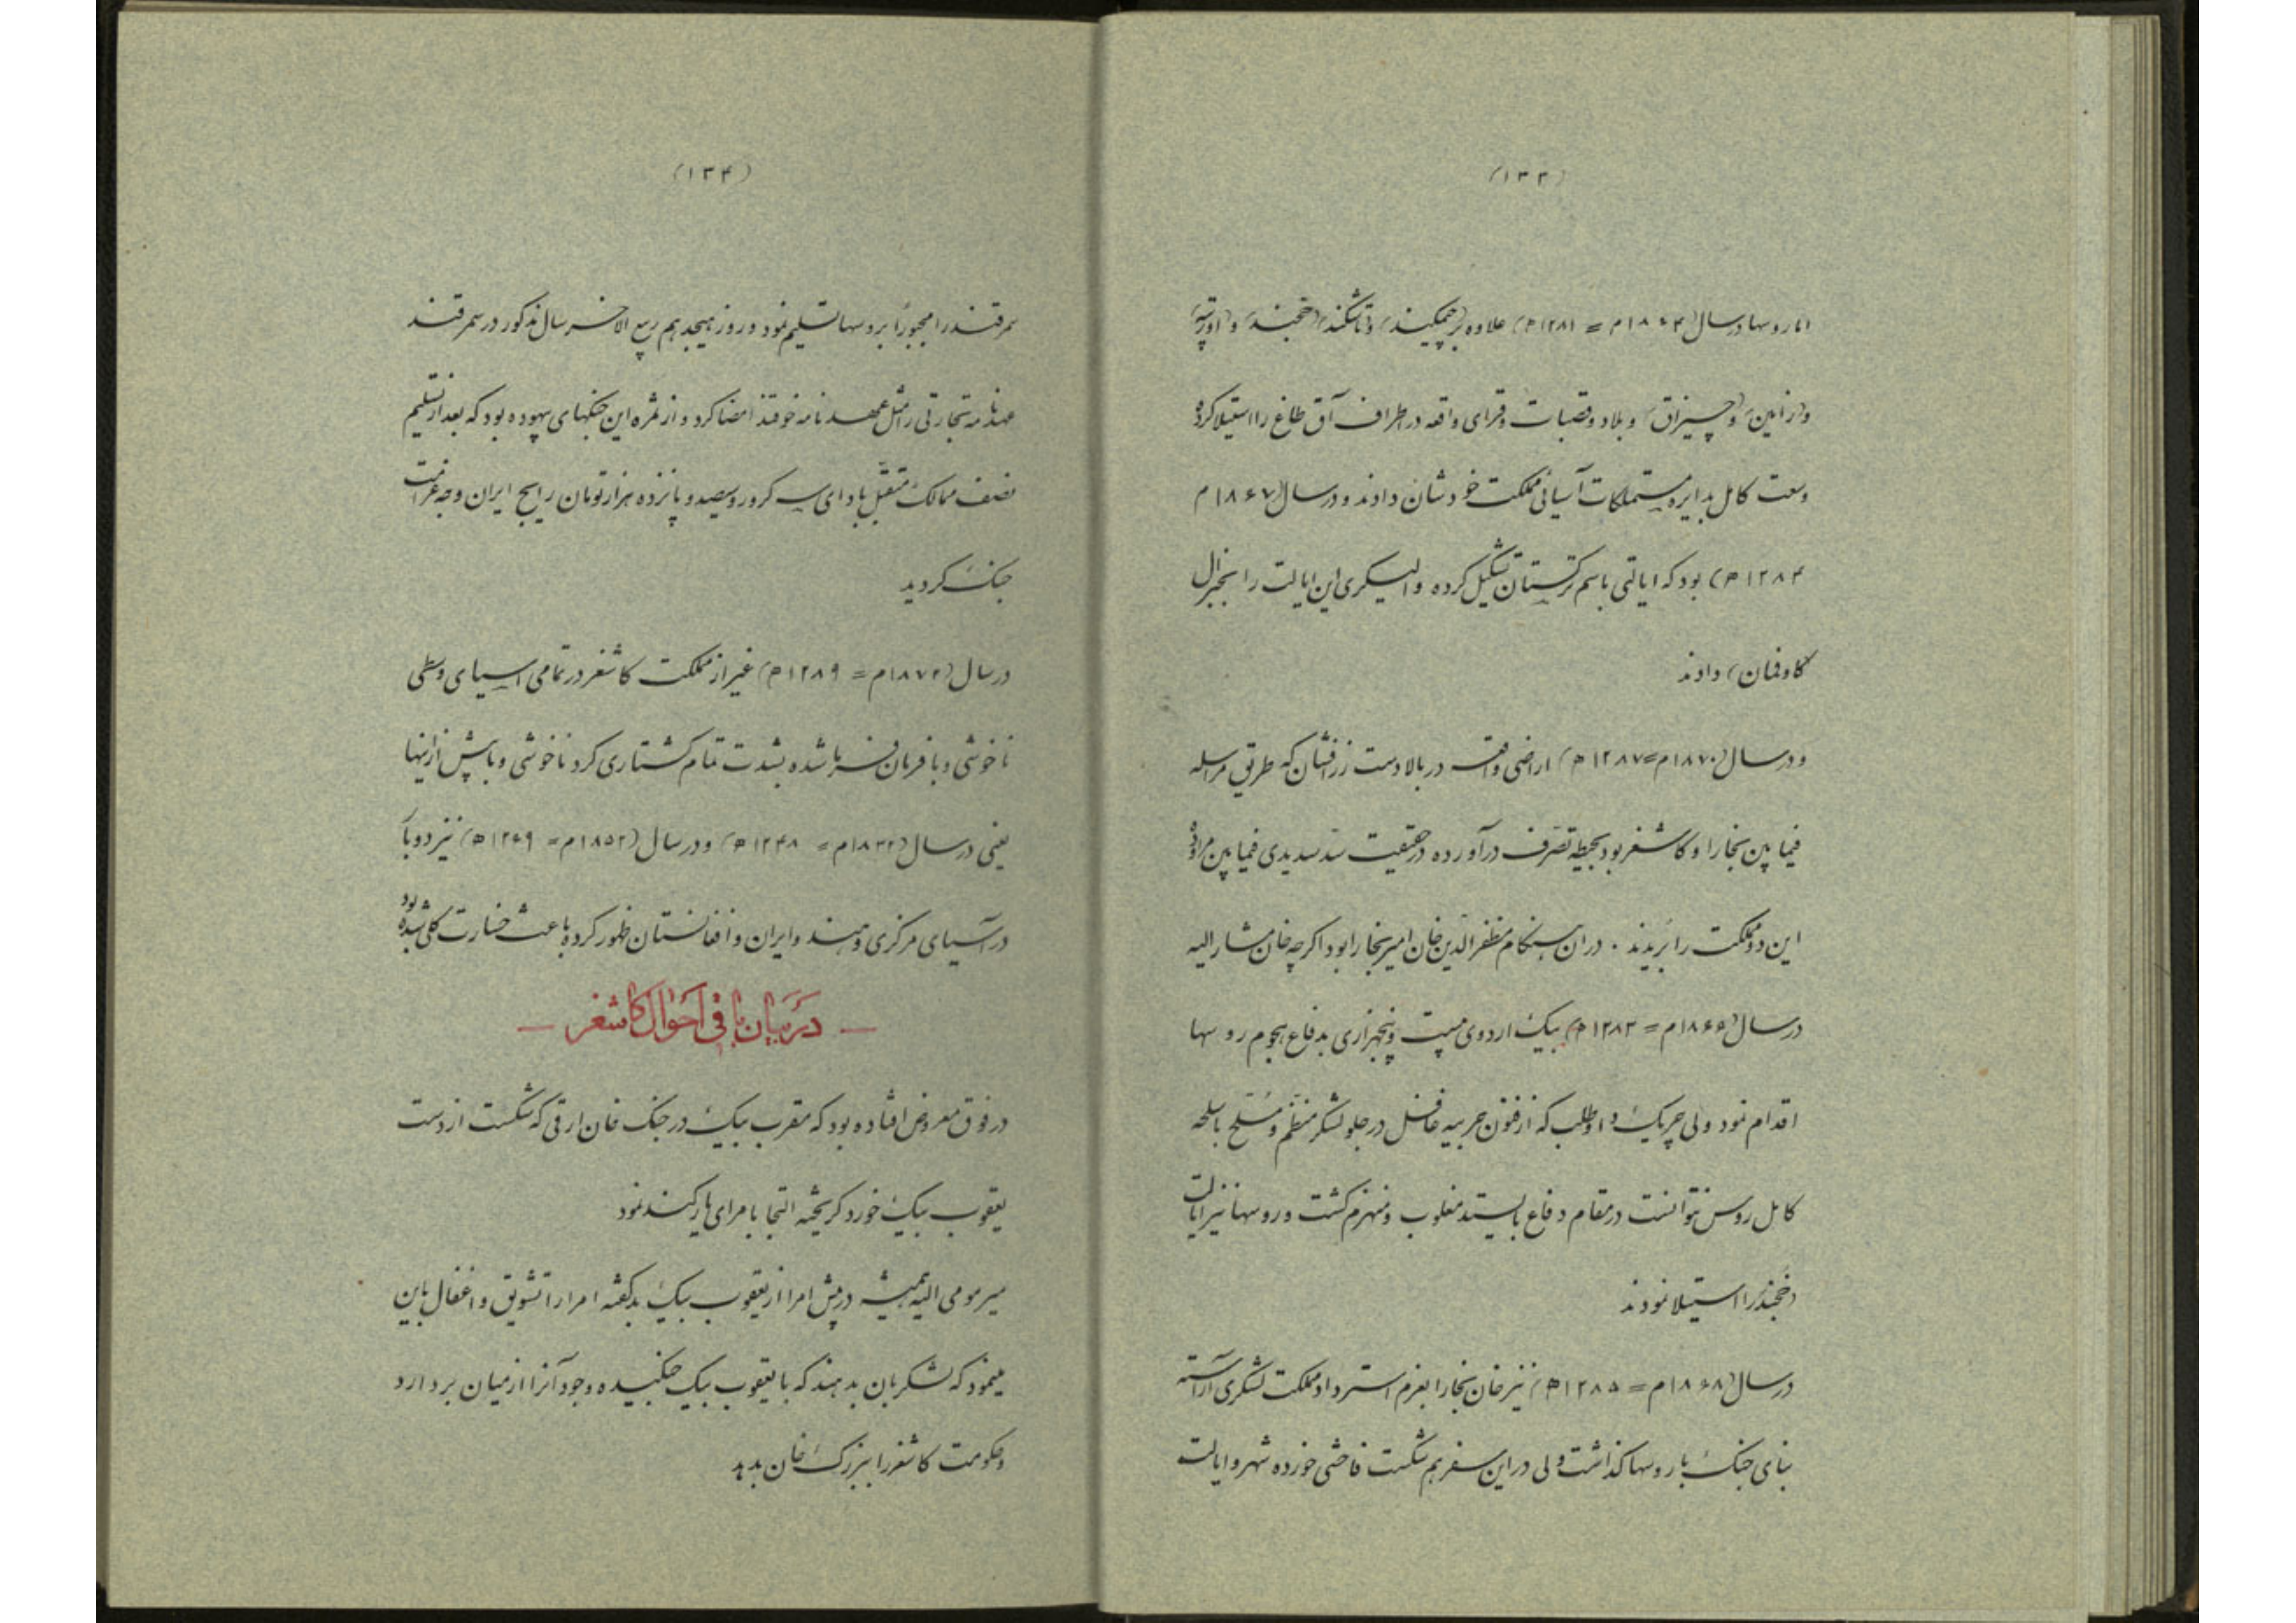 (۱۳۳)
اما روسها در سال (۱۸۶۴م = ۱۲۸۱ه) علاوه بر (چمکیند) و (تاشکند) (خجند) و (اورتپه)
و (زامین) و (چیزاق) و بلاد و قصبات و قرای واقعه در اطراف آق طاغ را استیلا کرده
وسعت کامل بدایره مستملکات آسیائی مملکت خودشان دادند و در سال (۱۸۶۷م
۱۲۸۴ه) بود که ایالتی باسم ترکستان تشکیل کرده و الیسکری این ایالت را بجنرال
کاوفمان) دادند
و در سال (۱۸۷۰م=۱۲۸۷ه) اراضی واقعه در بالا دست زرافشان که طریق مراسله
فیمابین بخارا و کاشغر بود بحیطه تصرف در آورده در حقیقت سد سدیدی فیمابین مراوده
این دو مملکت را بریدند . در ان هنکام مظفر الدین خان امیر بخارا بود اکرچه خان مشار الیه
در سال (۱۸۶۵م = ۱۲۸۲ه) بیک اردوی بیست و پنجهزاری بدفاع هجوم روسها
اقدام نمود ولی چریک داوطلب که از فنون حربیه غافل در جلو لشکر منظم و مسلح باسلحه
کامل روس نتوانست در مقام دفاع بایستد مغلوب و منهزم کشت و روسها نیز ایالت
(خجند) را استیلا نمودند
در سال (۱۸۶۸م = ۱۲۸۵ه) نیز خان بخارا بعزم استرداد مملکت لشکری آراسته
بنای جنک با روسها کذاشت ولی در این سفر هم شکست فاحشی خورده شهر و ایالت
(۱۳۴)
سمرقند را مجبوراً بروسها تسلیم نمود و روز هیجدهم ربیع الاخر سال مذکور در سمرقند
عهدنامه تجارتی را مثل عهدنامه خوقند امضا کرد و از ثمره این جنکهای بیهوده بود که بعد از تسلیم
نصف ممالک متقبل بادای سه کرور و سیصد و پانزده هزار تومان رایج ایران وجه غرامت
جنک کردید
در سال (۱۸۷۲م = ۱۲۸۹ه) غیر از مملکت کاشغر در تمامی اسیای وسطی
ناخوشی وبا فرمان فرما شده بشدت تمام کشتاری کرد ناخوشی وبا پیش از اینها
یعنی در سال (۱۸۳۲م = ۱۲۴۸ه) و در سال (۱۸۵۲م = ۱۲۶۹ه) نیز دوبار
در آسیای مرکزی و هند و ایران و افغانستان ظهور کرده باعث خسارت کلی شده بود
— در بیان باقی احوال کاشغر —
در فوق معروض افتاده بود که مقرب بیک در جنک خان ارقی که شکست از دست
یعقوب بیک خورد کریخته التجا بامرای یارکند نمود
میر مومی الیه همیشه در پیش امرا از یعقوب بیک بد کفته امرا را تشویق و اغفال باین
مینمود که لشکر بان بدهند که با یعقوب بیک جنکیده وجود آنرا از میان بردارد
و حکومت کاشغر را ببزرک خان بدهد